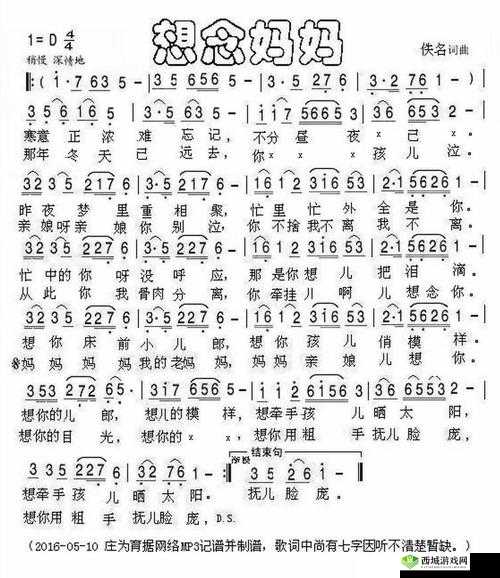 想念妈妈
1=D 4/4
佚名 词曲
稍慢 深情地
‖:( i·7 6 3 5 - | 3 5 6 5 6 5 - | 3·2 2 2 7 6 - | 3·2 7 6 1 - )|
3 5 6 1 6 5 | 3 5 2 3 2 1 - | 1 1 7 5 0 6 5 3 | 3 6 6 5 3 2 - |
寒意正浓难忘记, 不分昼夜x己x.
那年冬天已远去, 你xxx孩儿泣.
3 2 3 5 2 2 7 6 | 3·5 2 2 7 6 - | 1 6 1 2 3 1 6 5 3 | 2·1 5 6 2 6 1 - |
昨夜梦里重相聚, 忙里忙外全是你.
亲娘呀亲娘你别泣, 你不舍我不离我不离.
3 2 3 5 2 2 7 6 | 3·5 2 2 7 6 - | 1 6 1 2 3 1 6 5 3 | 2·1 5 6 2 6 1 - |
忙中的你呀没呼应, 那是你想儿把泪滴.
从此你我骨肉分离, 你牵挂儿啊儿想念你.
3 2 3 5 2 2 7 6 | 3·5 2 2 7 6 - | 1 6 1 2 3 1 6 5 3 | 2·1 5 6 2 6 1 - |
想你床前小儿郎, 想你孩儿俏模样.
※妈妈妈妈我的老妈妈, 妈妈亲娘儿想你.
3 5 3 2 7 2 6 5 - | 3·1 7 6 5 6 5 - | i·i 2 6 i 5 6 | 3 3 6 5 5 3 2 - |
想你的儿郎, 想儿的模样, 想牵手孩儿晒太阳,
想你的目光, 想你的x x, 想你用粗手抚儿脸庞,
3 3 5 2 2 7 6 | 2 3 2 7 6 1 - :‖ 3 5 2 6 1 - ‖
渐慢 结束句
想牵手孩儿晒太阳. 抚儿脸庞.
想你用粗手抚儿脸庞, D.S.
(2016-05-10 庄为育据网络MP3记谱并制谱, 歌词中尚有七字因听不清楚暂缺.)
西城游戏网